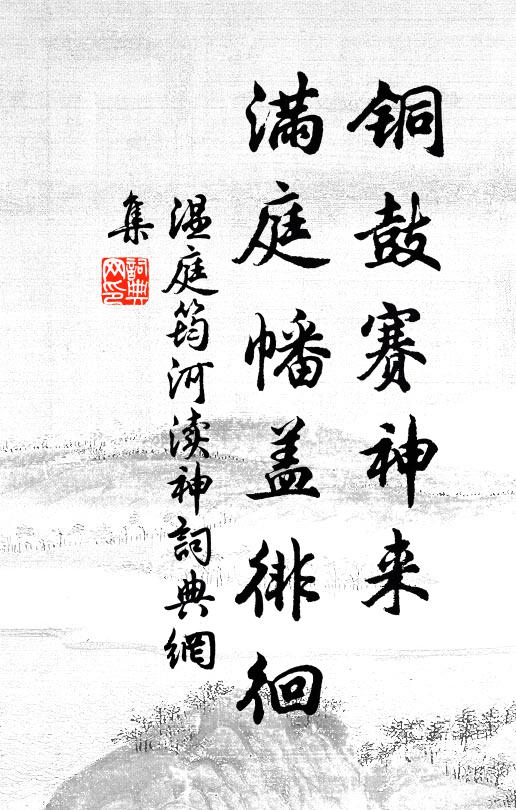 铜鼓赛神来
满庭幡盖徘徊
温庭筠河渎神詞典網
集
詞典
网印